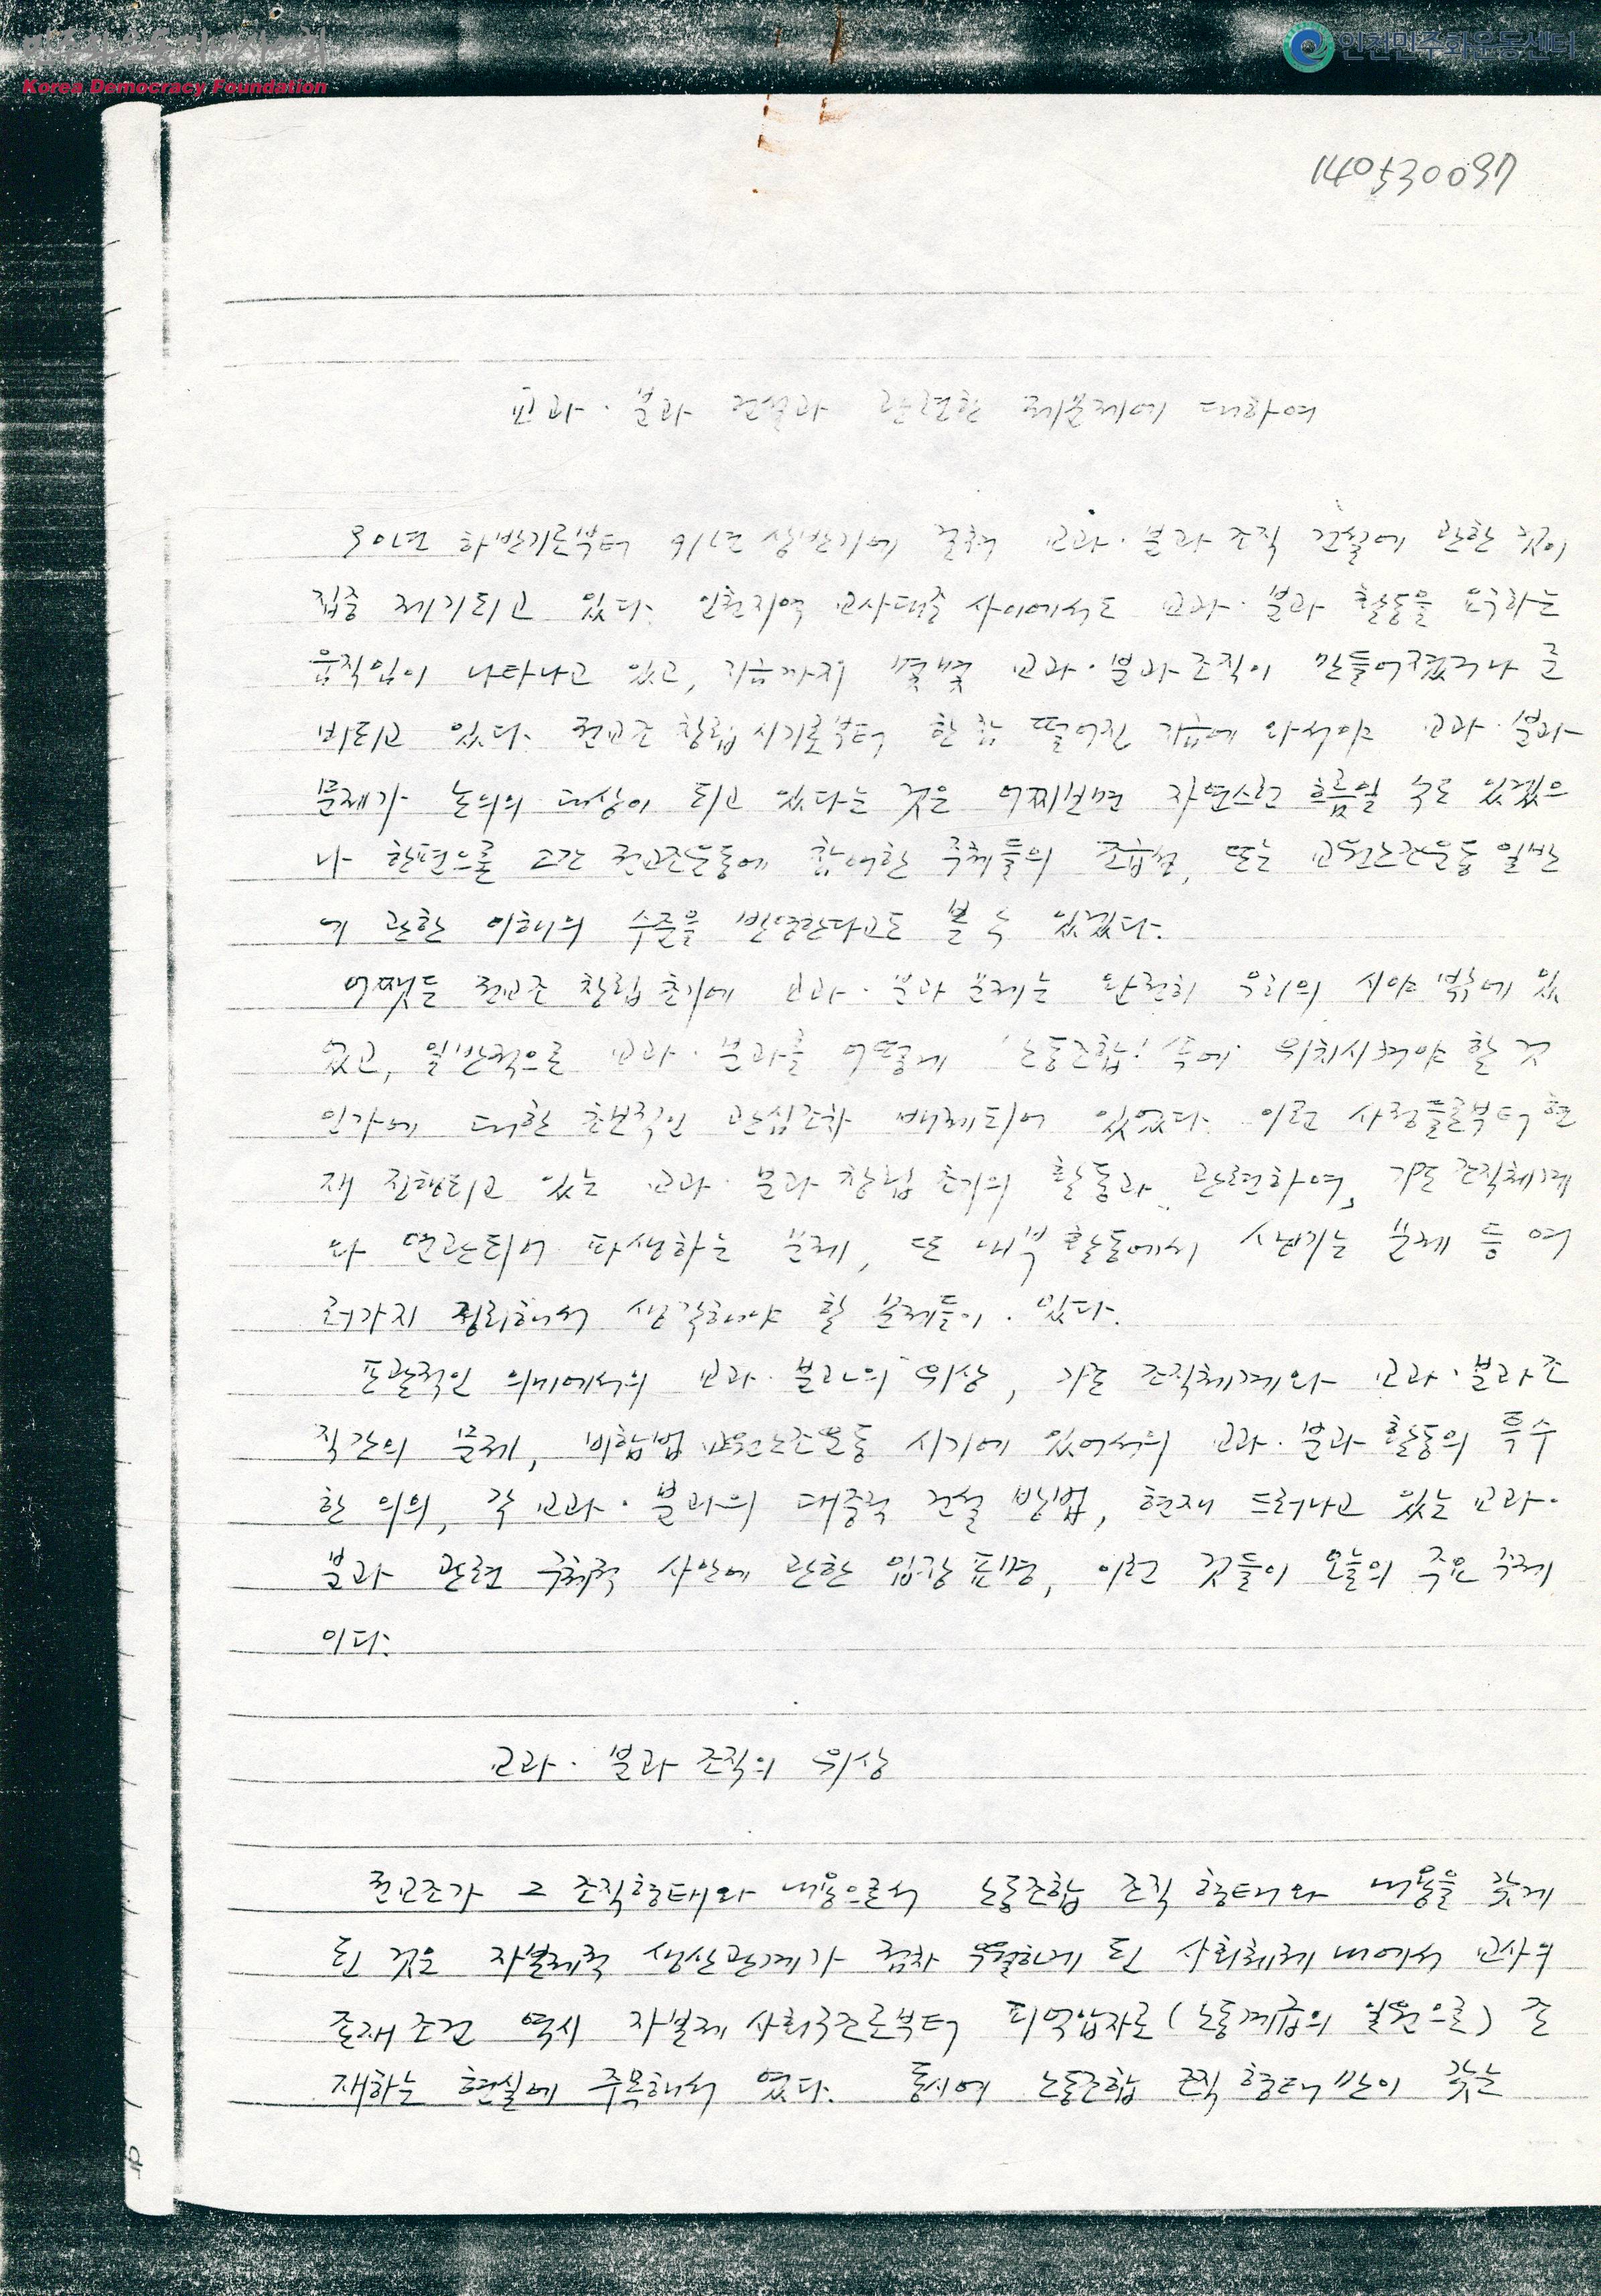 민주화운동기념사업회
Korea Democracy Foundation
인천민주화운동센터
140530097
교과·분과 건설과 관련한 제문제에 대하여
90년 하반기로부터 91년 상반기에 걸쳐 교과·분과 조직 건설에 관한 것이
집중 제기되고 있다. 인천지역 교사대중 사이에서도 교과·분과 활동을 요구하는
움직임이 나타나고 있고, 지금까지 몇몇 교과·분과 조직이 만들어졌거나 준
비되고 있다. 전교조 창립 시기로부터 한참 떨어진 지금에 와서야 교과·분과
문제가 논의의 대상이 되고 있다는 것은 어찌보면 자연스런 흐름일 수도 있겠으
나 한편으론 그간 전교조운동에 참여한 주체들의 조급성, 또는 교원노조운동 일반
에 관한 이해의 수준을 반영한다고도 볼 수 있겠다.
어쨋든 전교조 창립 초기에 교과·분과 문제는 완전히 우리의 시야 밖에 있
었고, 일반적으로 교과·분과를 어떻게 '노동조합' 속에 위치시켜야 할 것
인가에 대한 초보적인 관심조차 배제되어 있었다. 이런 사정들로부터 현
재 진행되고 있는 교과·분과 창립 초기의 활동과 관련하여, 기존 조직체계
와 연관되어 파생하는 문제, 또 내부 활동에서 생기는 문제 등 여
러가지 정리해서 생각해야 할 문제들이 있다.
포괄적인 의미에서의 교과·분과의 위상, 기존 조직체계와 교과·분과 조
직간의 문제, 비합법 교원노조운동 시기에 있어서의 교과·분과 활동의 특수
한 의의, 각 교과·분과의 대중적 건설 방법, 현재 드러나고 있는 교과·
분과 관련 구체적 사안에 관한 입장 표명, 이런 것들이 오늘의 주요 주제
이다.
교과·분과 조직의 위상
전교조가 그 조직형태와 내용으로서 노동조합 조직 형태와 내용을 갖게
된 것은 자본제적 생산관계가 점차 우월하게 된 사회체제 내에서 교사의
존재 조건 역시 자본제 사회구조로부터 피억압자로(노동계급의 일원으로) 존
재하는 현실에 주목해서 였다. 동시에 노동조합 조직 형태만이 갖는